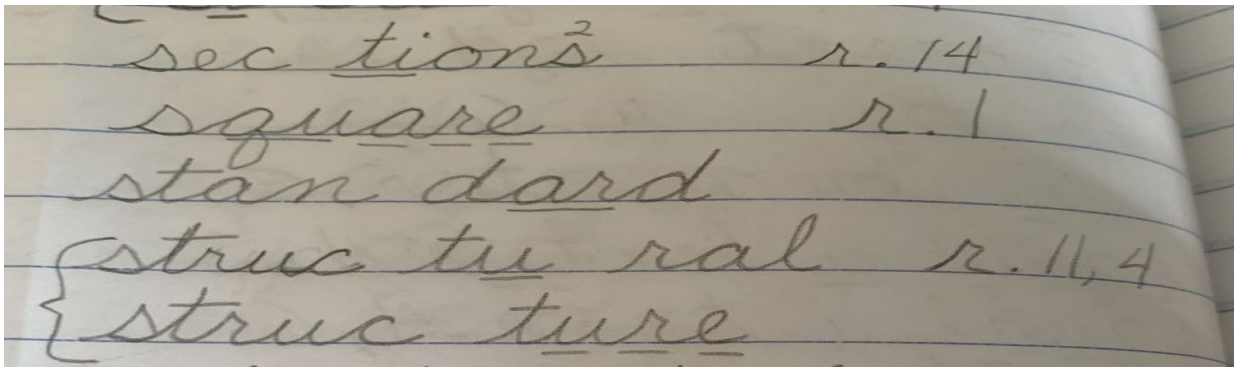 sec tions² r. 14
square r. 1
stan dard
struc tu ral r. 11, 4
struc ture